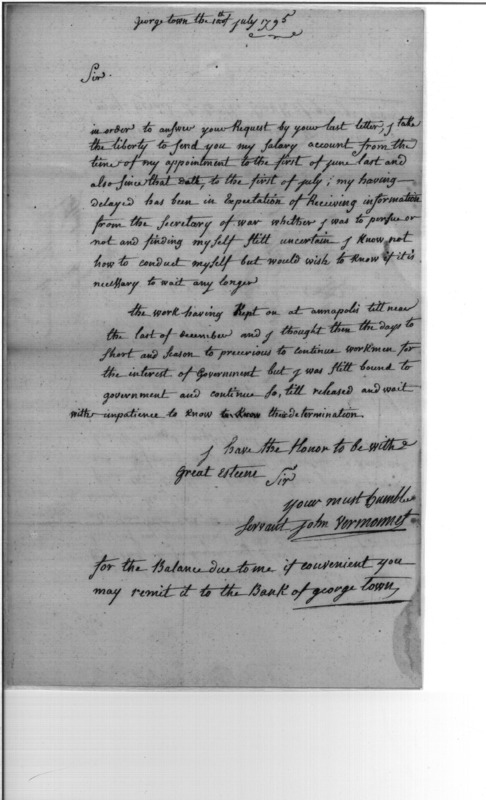 george town the 1st july 1795
Sir
in order to answer your Request by your last letter, j take
the liberty to send you my salary account from the
time of my appointment to the first of june last and
also since that dath, to the first of july; my having
delayed has been in Expectation of Receiving information
from the Secretary of war whether j was to persue or
not and finding myself still uncertain j know not
how to conduct myself but would wish to know if it is
necessary to wait any longer
the work having kept on at annapolis till near
the last of december and j thought then the days to
short and season to precerious to continue workmen for
the interest of Government but j was still bound to
government and continue so, till released and wait
with impatience to know to know the determination.
j have the Honor to be with
Great Esteeme Sir
your must humble
servant john Vermonnet
for the Balance due to me if convenient you
may remit it to the Bank of george town,